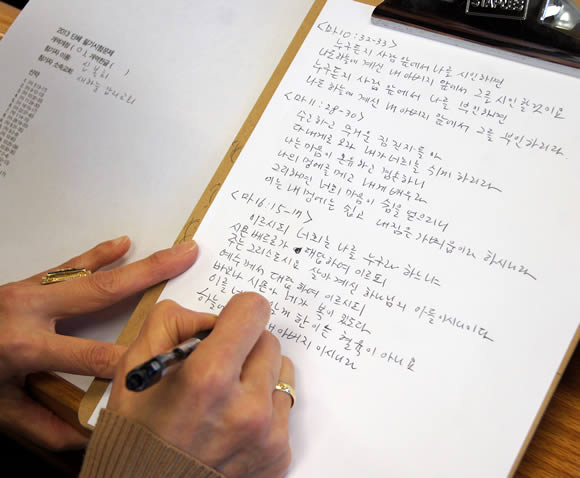 STAPLES
2013 단체 필기시험문제
개역개정 ( O ) 개역한글 ( )
참가자 이름:
참가자 소속교회:
<마10:32-33>
누구든지 사람 앞에서 나를 시인하면
나도 하늘에 계신 내 아버지 앞에서 그를 시인할 것이요
누구든지 사람 앞에서 나를 부인하면
나도 하늘에 계신 내 아버지 앞에서 그를 부인하리라
<마11:28-30>
수고하고 무거운 짐 진 자들아
다 내게로 오라 내가 너희를 쉬게 하리라
나는 마음이 온유하고 겸손하니
나의 멍에를 메고 내게 배우라
그리하면 너희 마음이 쉼을 얻으리니
이는 내 멍에는 쉽고 내 짐은 가벼움이라 하시니라
<마16:15-17>
이르시되 너희는 나를 누구라 하느냐
시몬 베드로가 대답하여 이르되
주는 그리스도시요 살아 계신 하나님의 아들이시니이다
예수께서 대답하여 이르시되
바요나 시몬아 네가 복이 있도다
이를 알게 한 이는 혈육이 아니요
하늘에 내 아버지 이시니라